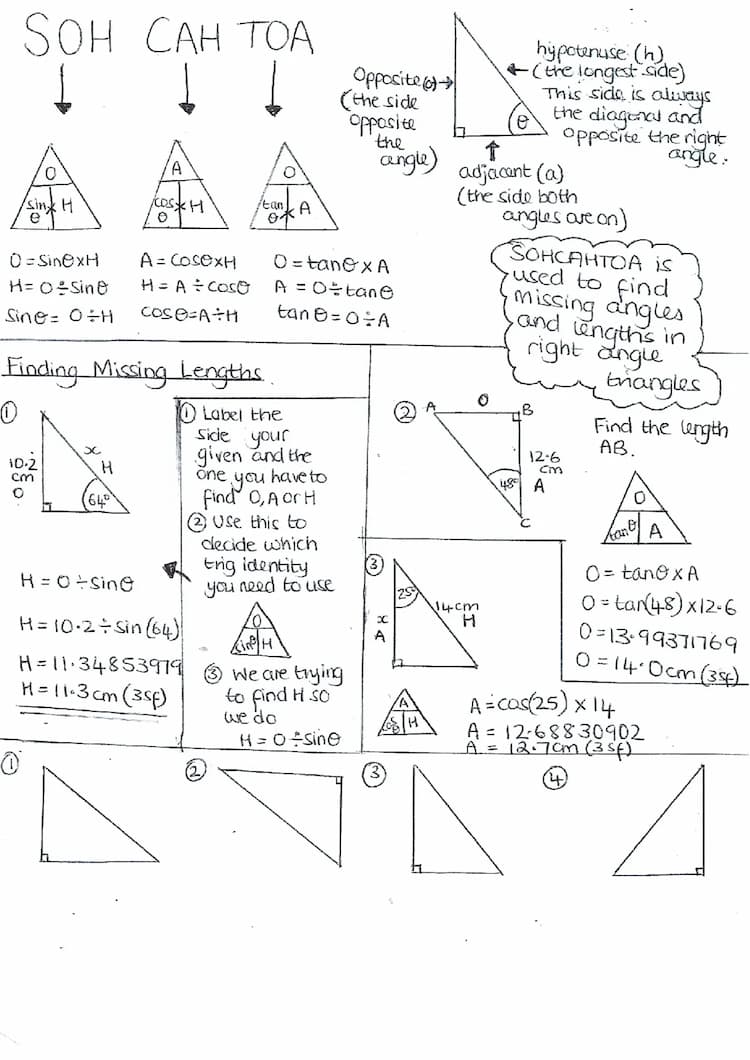 SOH CAH TOA
Opposite(o)→
(the side
opposite
the
angle)
hypotenuse (h)
(the longest side)
This side is always
the diagonal and
opposite the right
angle.
θ
adjacent (a)
(the side both
angles are on)
O
sin θ × H
A
cos θ × H
O
tan θ × A
O=sinθxH
H= O÷sinθ
sinθ= O÷H
A=cosθxH
H=A÷cosθ
cosθ=A÷H
O=tanθxA
A=O÷tanθ
tanθ=O÷A
SOHCAHTOA is
used to find
missing angles
and lengths in
right angle
triangles
Finding Missing Lengths
①
10.2
cm
O
x
H
64°
H=O÷sinθ
H=10.2÷sin(64)
H=11.34853979
H=11.3cm(3sf)
① Label the
side your
given and the
one you have to
find O,A or H
② Use this to
decide which
trig identity
you need to use
O
sinθ H
③ We are trying
to find H so
we do
H=O÷sinθ
②
A
O
B
12.6
cm
A
48°
C
Find the length
AB.
O
tanθ A
O=tanθxA
O=tan(48)x12.6
O=13.99371769
O=14.0cm(3sf)
③
25°
x
A
14cm
H
A
cosθ H
A=cos(25)x14
A=12.68830902
A=12.7cm(3sf)
①
②
③
④